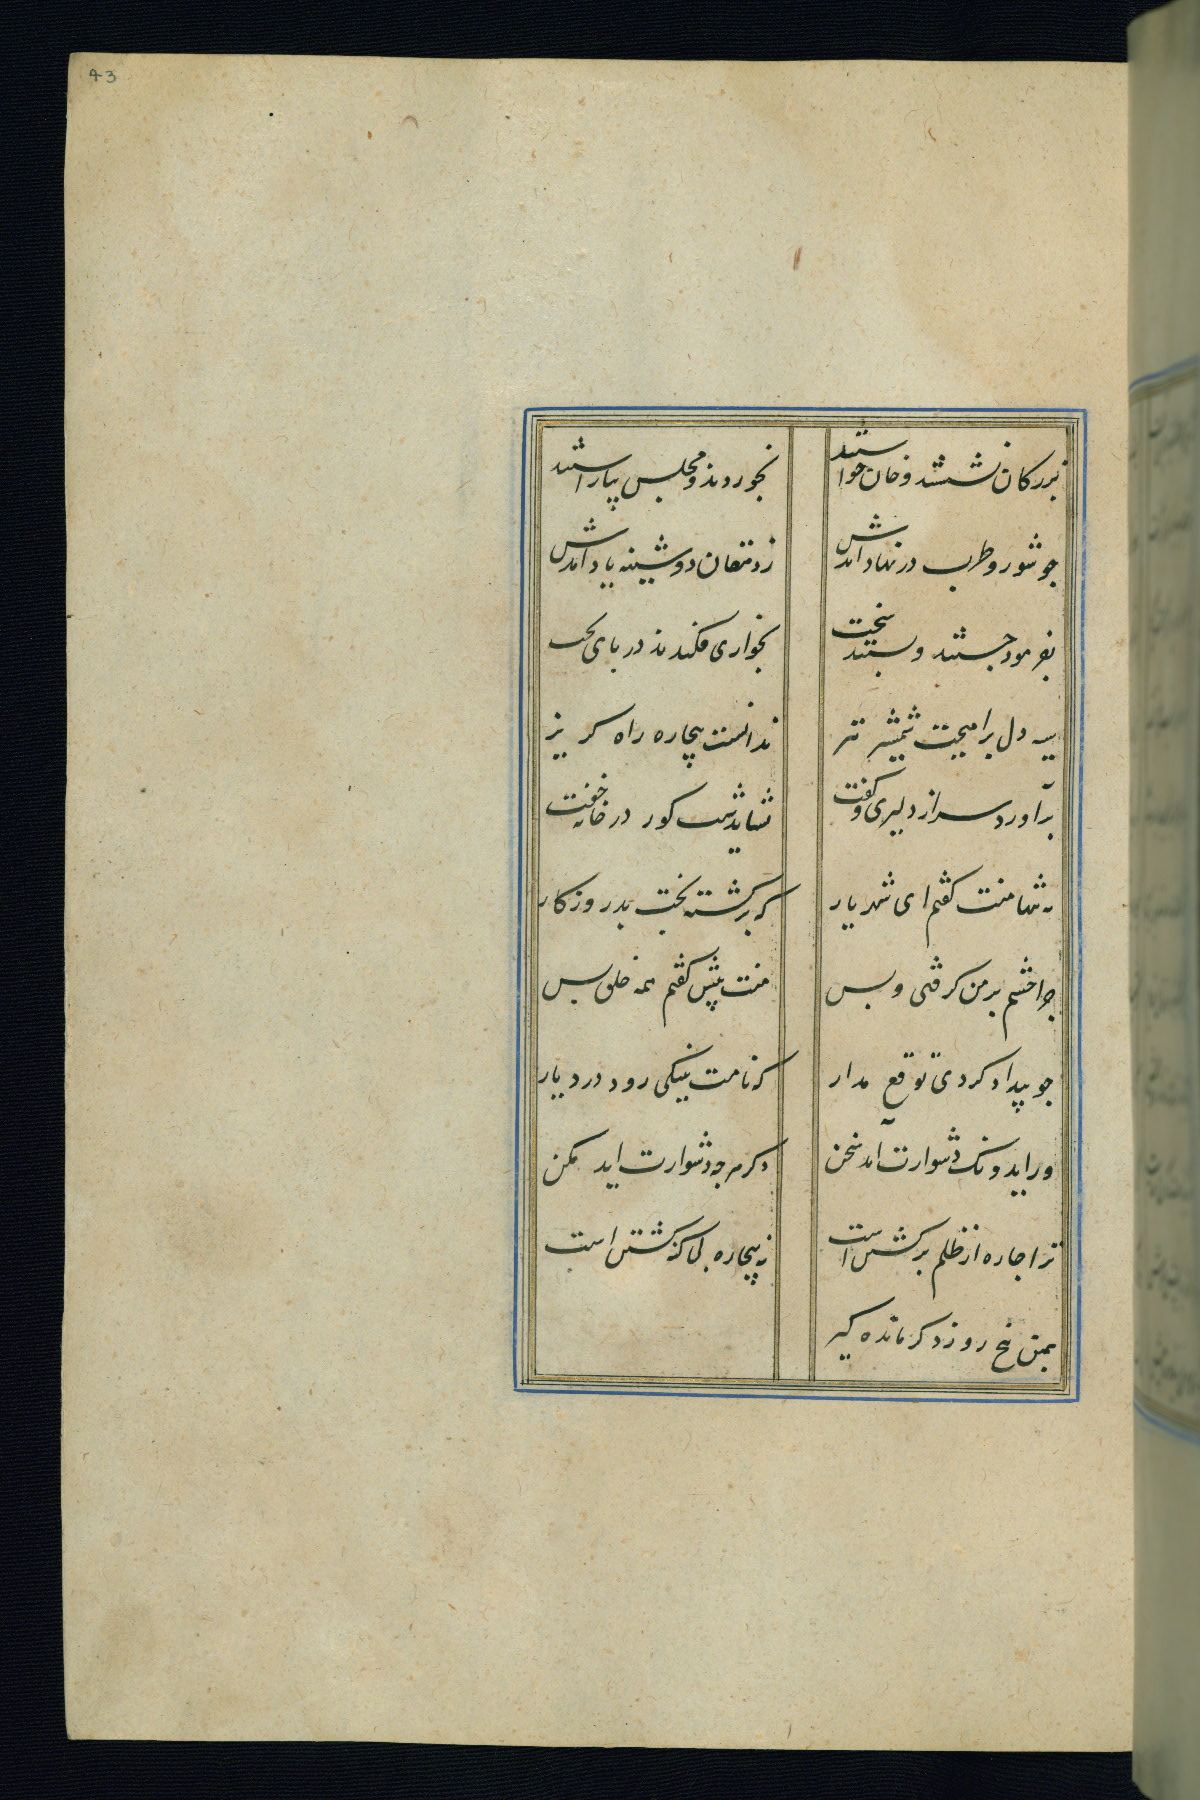 43
بزرکان نشستند و خوان خواستند
بخوردند و مجلس بیاراستند
جو شور و طرب در نهاد آمدش
ز دهقان دوشینه یاد آمدش
بفرمود جستند و بستند سخت
بخواری فکندند در پای تخت
سیه دل برآمیخت شمشیر تیز
ندانست بیچاره راه کریز
برآورد سر از دلیری و کفت
نشاید شب کور در خانه خفت
نه تنها منت کفتم ای شهریار
که برکشته بختی و بد روزکار
جرا خشم بر من کرفتی و بس
منت پیش کفتم همه خلق پس
جو بیداد کردی توقع مدار
که نامت بنیکی رود در دیار
ور ایدونک دشوارت آمد سخن
دکر هرجه دشوارت آید مکن
ترا جاره از ظلم برکشتن است
نه بیچاره بی کنه کشتن است
همین پنج روز دکر مانده کیر